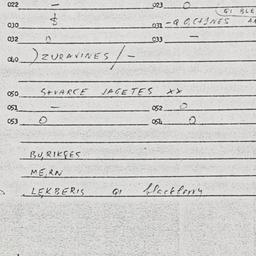 022 — 023 0
GI BLE
030 $ 031 -
032 0 033 —
040 ) ZURAVINES / —
050 SVARCE JAGETES xx
051 — 052 0
053 0 054 0
BURIKGES
MERN
LEKBERIS GI blackberry